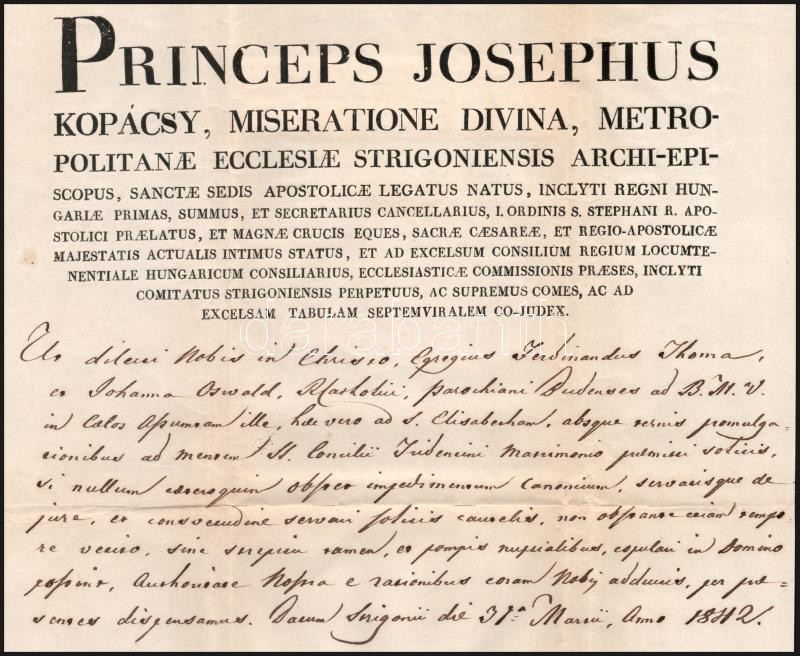 PRINCEPS JOSEPHUS
KOPÁCSY, MISERATIONE DIVINA, METRO-
POLITANÆ ECCLESIÆ STRIGONIENSIS ARCHI-EPI-
SCOPUS, SANCTÆ SEDIS APOSTOLICÆ LEGATUS NATUS, INCLYTI REGNI HUN-
GARIÆ PRIMAS, SUMMUS, ET SECRETARIUS CANCELLARIUS, I. ORDINIS S. STEPHANI R. APO-
STOLICI PRÆLATUS, ET MAGNÆ CRUCIS EQUES, SACRÆ CÆSAREÆ, ET REGIO-APOSTOLICÆ
MAJESTATIS ACTUALIS INTIMUS STATUS, ET AD EXCELSUM CONSILIUM REGIUM LOCUMTE-
NENTIALE HUNGARICUM CONSILIARIUS, ECCLESIASTICÆ COMMISSIONIS PRÆSES, INCLYTI
COMITATUS STRIGONIENSIS PERPETUUS, AC SUPREMUS COMES, AC AD
EXCELSAM TABULAM SEPTEMVIRALEM CO-JUDEX.
darabanth
Ut dilecti Nobis in Christo, Egregius Ferdinandus Thoma,
et Johanna Oswald, Acatholici, parochiani Budenses ad B. M. V.
in Cœlos Assumtam ille, hæc vero ad S. Elisabetham, absque ternis promulga-
tionibus ad mentem SS. Concilii Tridentini Matrimonio præmitti solitis,
si nullum cæteroquin obstet impedimentum canonicum, servatisque de
jure, et consvetudine servari solitis cautelis, non obstante etiam tempo-
re vetito, sine strepitu tamen, et pompis nuptialibus, copulari in Domino
possint, Authoritate Nostra e rationibus coram Nobis adductis, per præ-
sentes dispensamus. Datum Strigonii die 31ª Martii, Anno 1842.